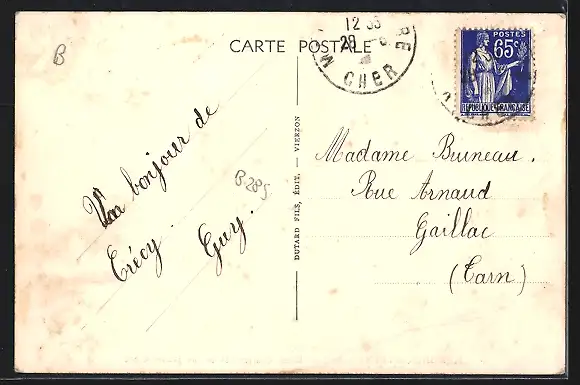 B
CARTE POSTALE
12
28
CHER
POSTES
65c
RÉPUBLIQUE FRANÇAISE
bonjour de
Crécy.
Guy.
B285
DUTARD FILS, ÉDIT. - VIERZON
Madame Buineau.
Rue Arnaud
Gaillac
(Tarn)